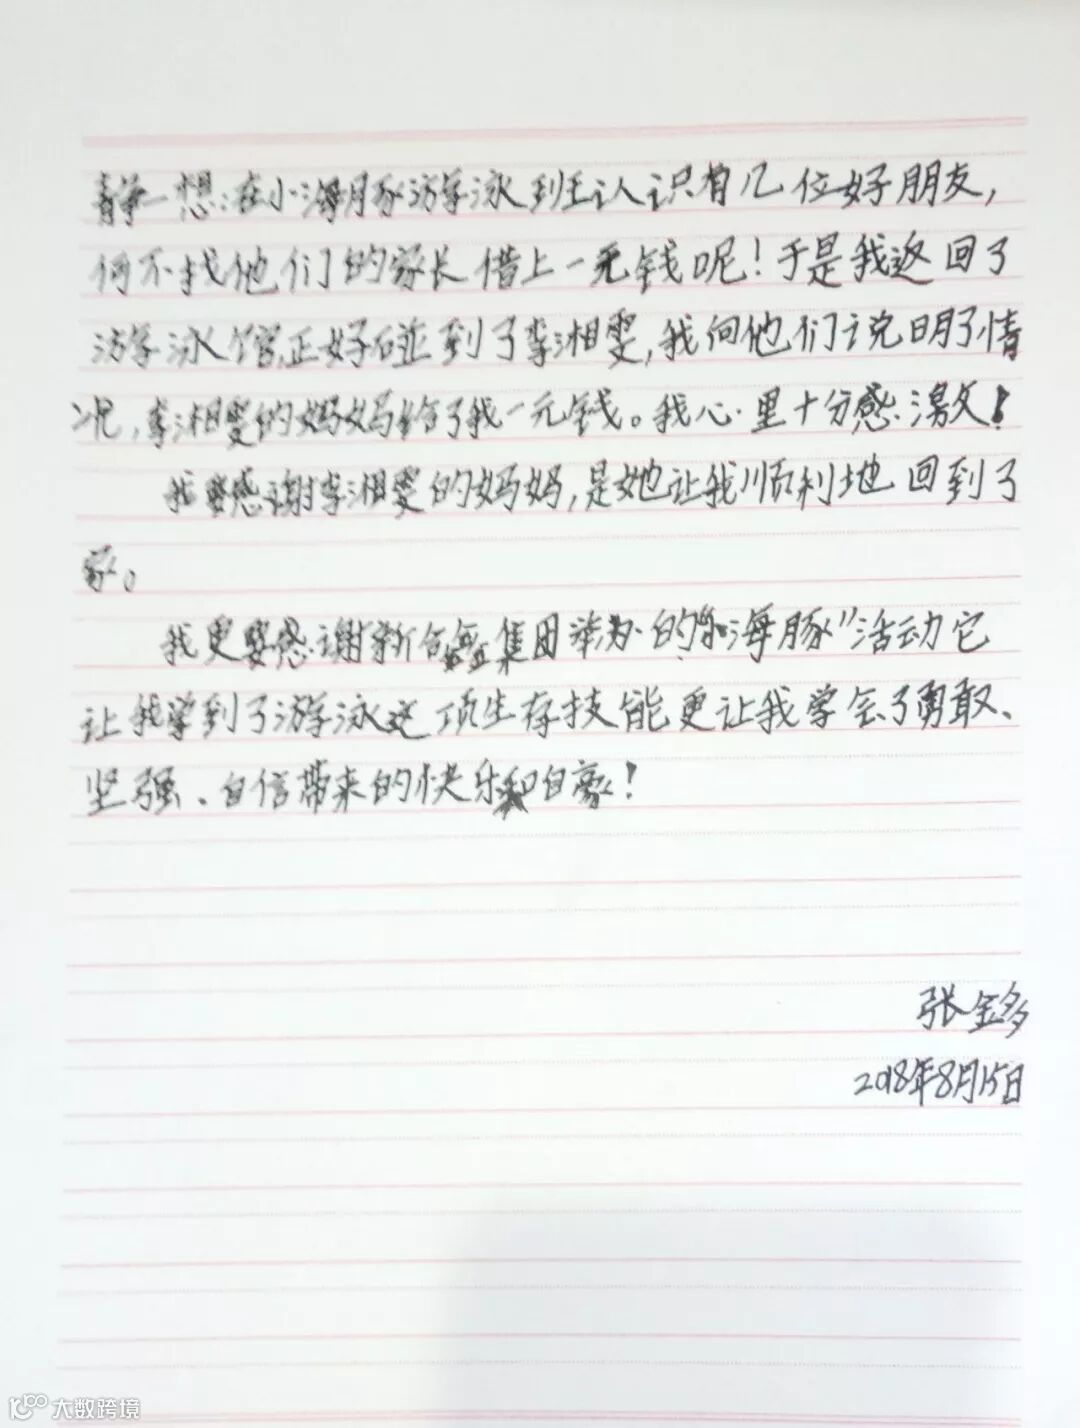 静一想:在小海豚游泳到王认识有几位好朋友,
何不找他们的家长借上一元钱呢!于是我返回了
游泳馆,正好碰到了李湘雯,我向他们说明了情
况,李湘雯的妈妈给了我一元钱。我心里十分感激!
我要感谢李湘雯的妈妈,是她让我顺利地回到了
家。
我更要感谢新合鑫集团举办的“小海豚”活动它
让我学到了游泳这项生存技能更让我学会了勇敢、
坚强、自信带来的快乐和自豪!
张金多
2018年8月15日
大数跨境